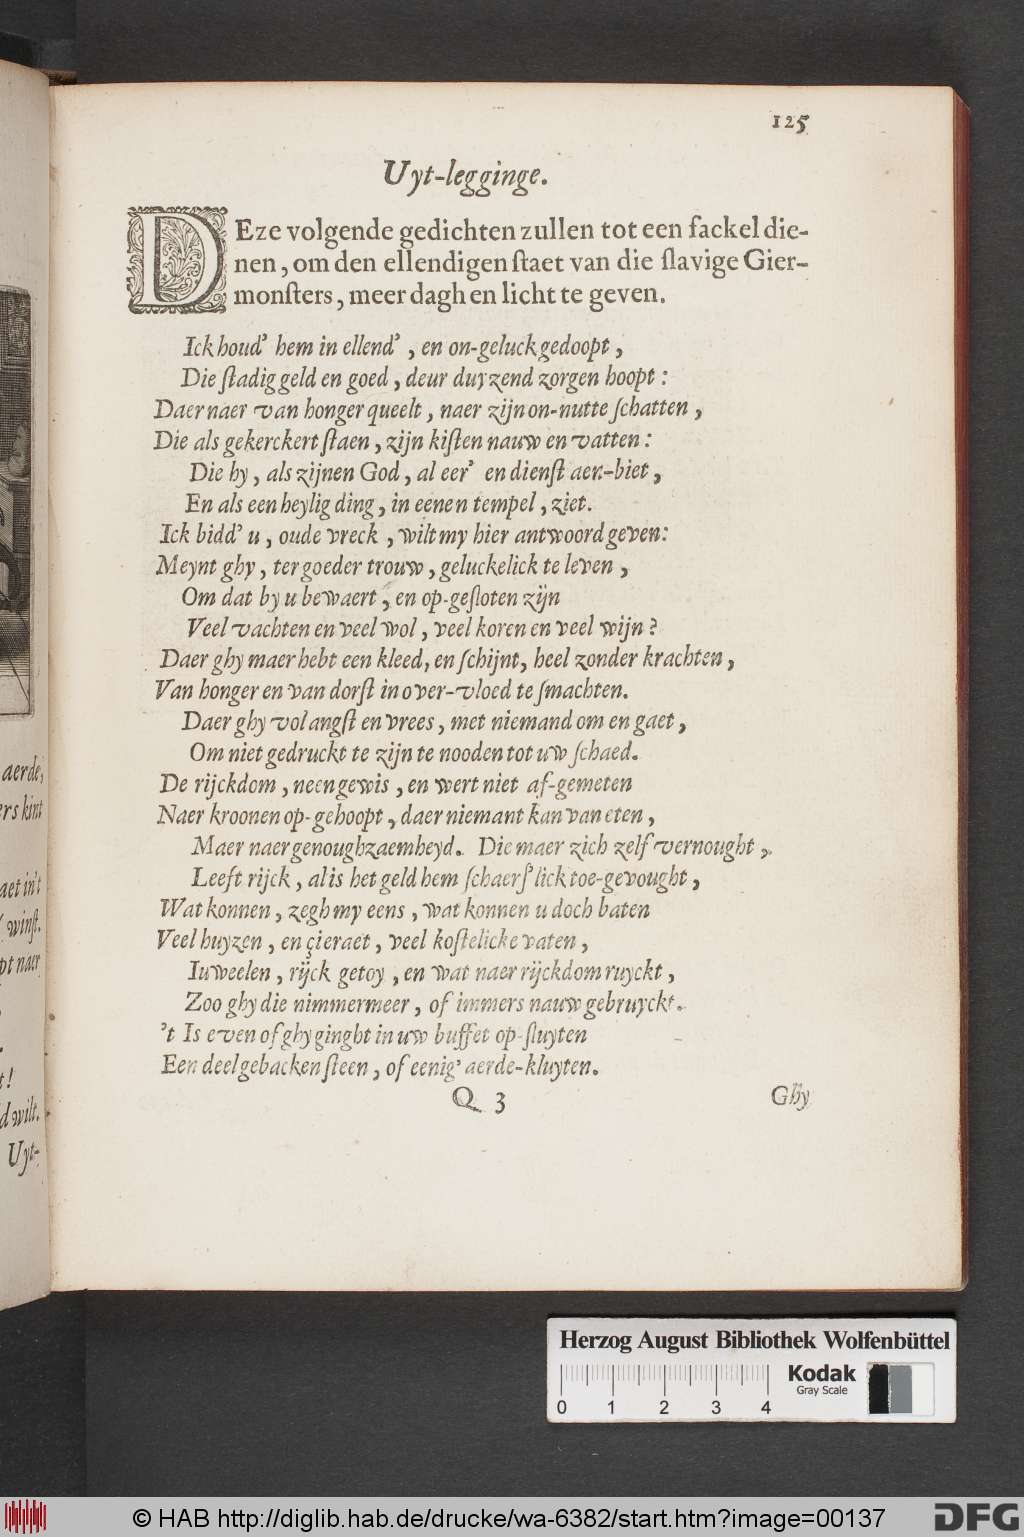 125
Uyt-legginge.
DEze volgende gedichten zullen tot een fackel die-
nen, om den ellendigen ſtaet van die ſlavige Gier-
monſters, meer dagh en licht te geven.
Ick houd' hem in ellend', en on-geluck gedoopt,
Die ſtadig geld en goed, deur duyzend zorgen hoopt:
Daer naer van honger queelt, naer zijn on-nutte ſchatten,
Die als gekerckert ſtaen, zijn kiſten nauw en vatten:
Die hy, als zijnen God, al eer' en dienſt aen-biet,
En als een heylig ding, in eenen tempel, ziet.
Ick bidd' u, oude vreck, wilt my hier antwoord geven:
Meynt ghy, ter goeder trouw, geluckelick te leven,
Om dat by u bewaert, en op-geſloten zijn
Veel vachten en veel wol, veel koren en veel wijn?
Daer ghy maer hebt een kleed, en ſchijnt, heel zonder krachten,
Van honger en van dorſt in over-vloed te ſmachten.
Daer ghy vol angſt en vrees, met niemand om en gaet,
Om niet gedruckt te zijn te nooden tot uw ſchaed.
De rijckdom, neen gewis, en wert niet af-gemeten
Naer kroonen op-gehoopt, daer niemant kan van eten,
Maer naer genoughzaemheyd. Die maer zich zelf vernought,
Leeft rijck, al is het geld hem ſchaerſ'lick toe-gevought,
Wat konnen, zegh my eens, wat konnen u doch baten
Veel huyzen, en çieraet, veel koſtelicke vaten,
Iuweelen, rijck getoy, en wat naer rijckdom ruyckt,
Zoo ghy die nimmermeer, of immers nauw gebruyckt.
't Is even of ghy ginght in uw buffet op-ſluyten
Een deel gebacken ſteen, of eenig' aerde-kluyten.
Q 3 Ghy
aerde,
ers kint
aet in't
winſt.
pt naer
t!
d wilt.
Uyt-
Herzog August Bibliothek Wolfenbüttel
Kodak
Gray Scale
0 1 2 3 4
© HAB http://diglib.hab.de/drucke/wa-6382/start.htm?image=00137
DFG